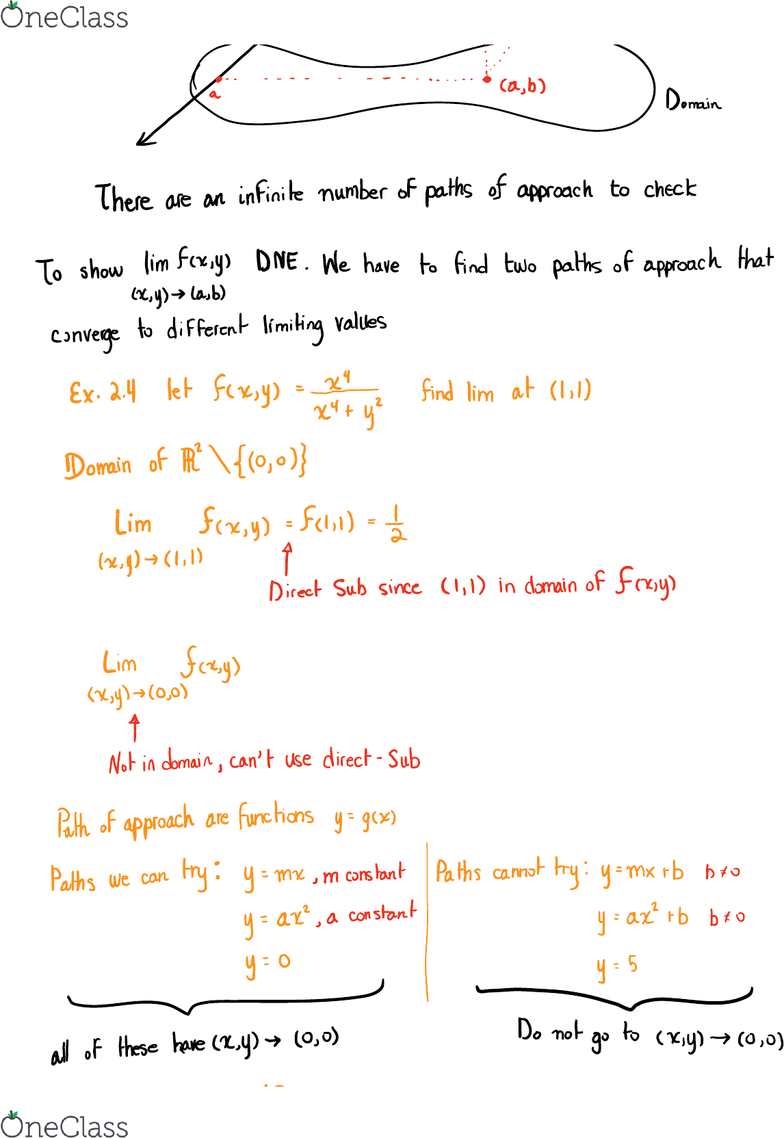 OneClass
a
(a,b)
Domain
There are an infinite number of paths of approach to check
To show lim f(x,y) DNE. We have to find two paths of approach that
(x,y)→(a,b)
converge to different limiting values
Ex. 2.4 let f(x,y) = x⁴/(x⁴+y²) find lim at (1,1)
Domain of ℝ²\{(0,0)}
Lim f(x,y) = f(1,1) = 1/2
(x,y)→(1,1)
Direct Sub since (1,1) in domain of f(x,y)
Lim f(x,y)
(x,y)→(0,0)
Not in domain, can't use direct-Sub
Path of approach are functions y=g(x)
Paths we can try: y=mx, m constant
y=ax², a constant
y=0
all of these have (x,y)→(0,0)
Paths cannot try: y=mx+b b≠0
y=ax²+b b≠0
y=5
Do not go to (x,y)→(0,0)
OneClass